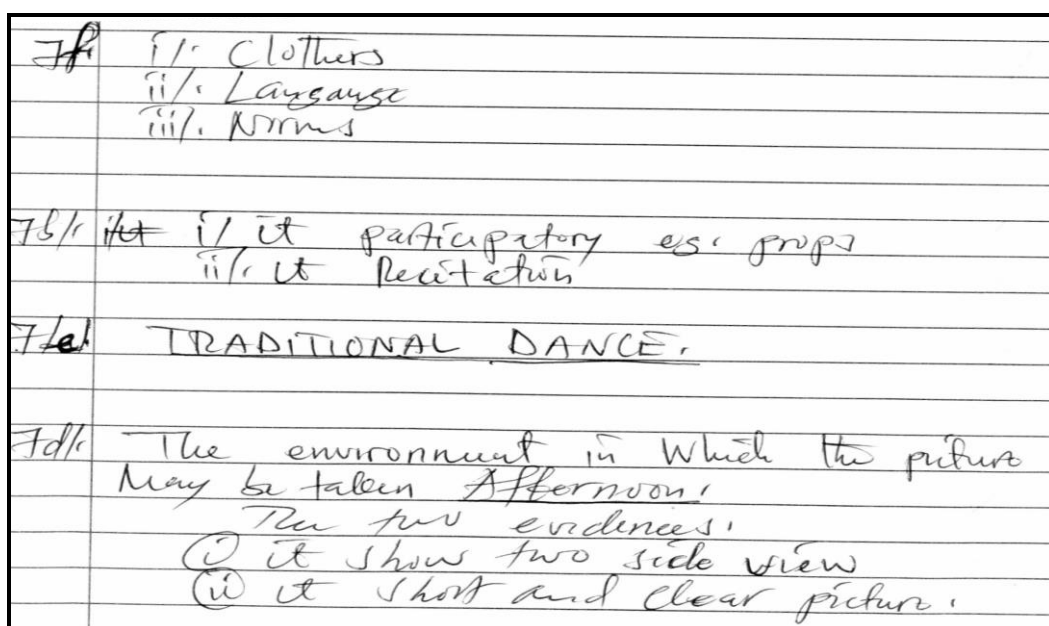 7f. i/. Clothers
ii/. Langauge
iii/. Norms
7b/. i/ it participatory eg. props
ii/. it Recitation
7/e/. TRADITIONAL DANCE.
7d/. The environment in Which the picture
May be taken Afternoon.
The two evidences.
(i) it show two side view
(ii) it short and clear picture.